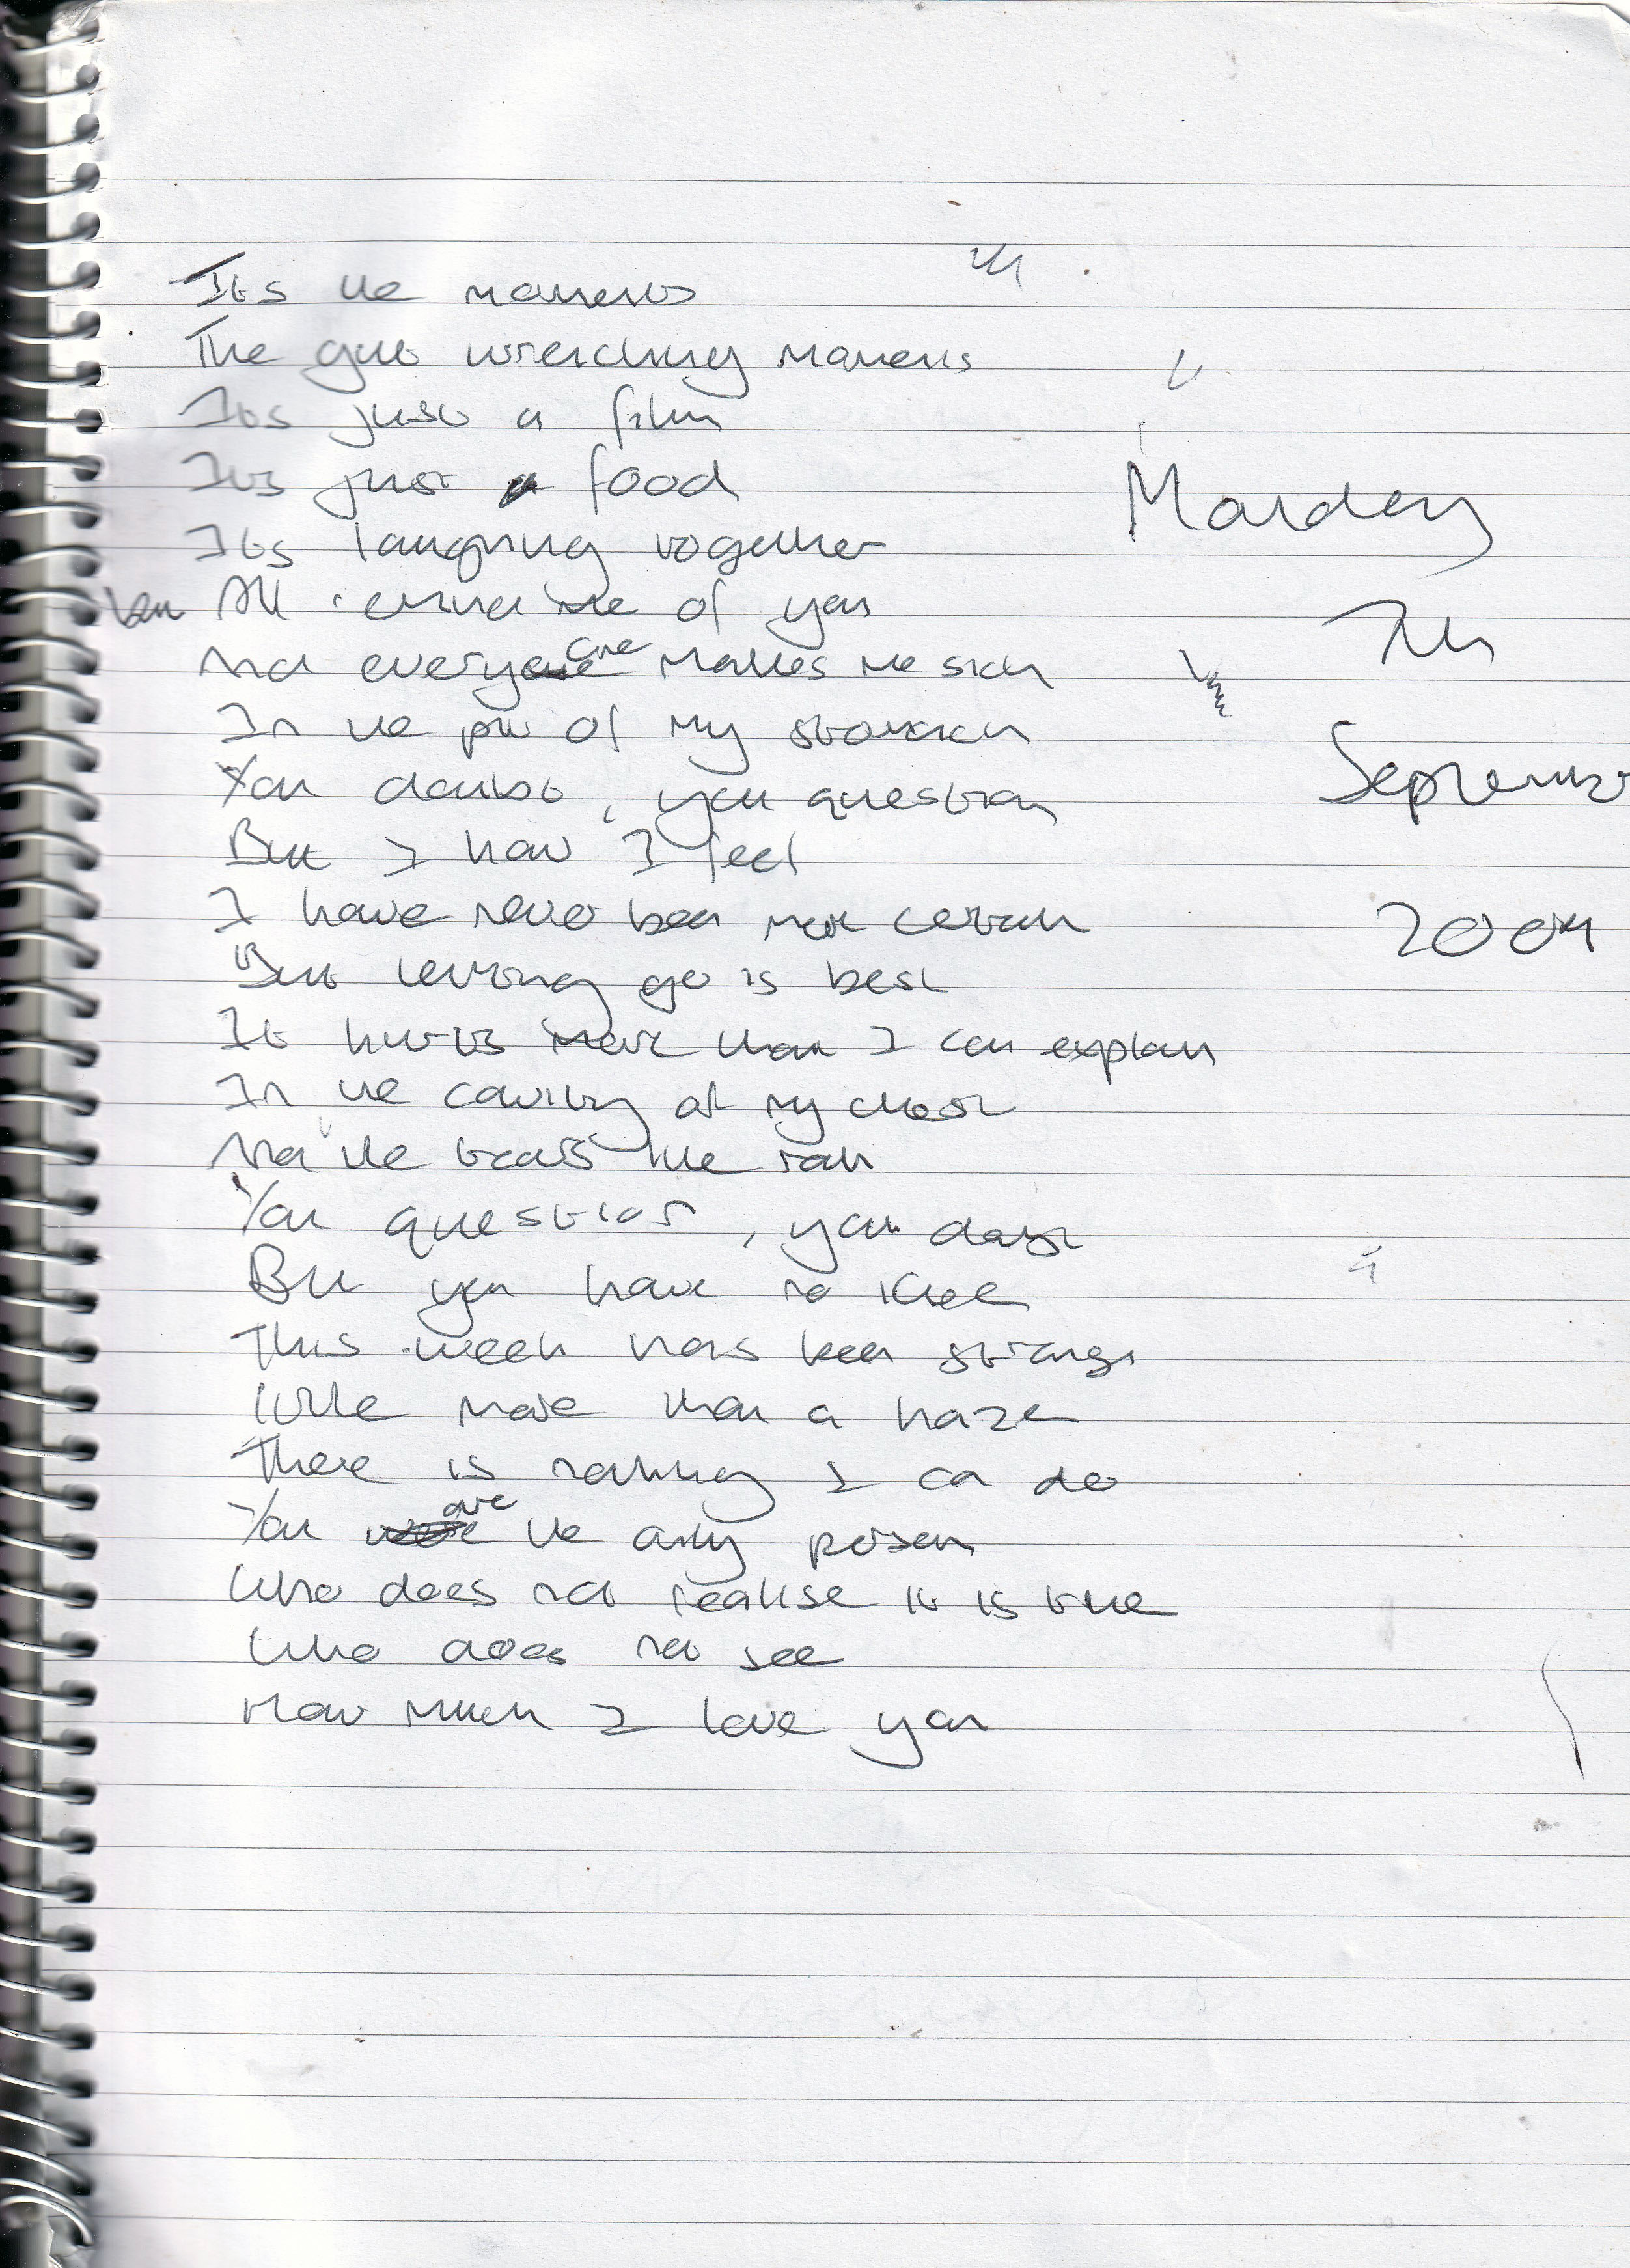 Its the moments
The gut wrenching moments
Its just a film
Its just food
Its laughing together
All remind me of you
And every one makes me sick
In the pit of my stomach
You doubt, you question
But I know I feel
I have never been more certain
But letting go is best
It hurts more than I can explain
In the cavity of my chest
And the tears like rain
You question, you doubt
But you have no idea
This week has been strange
Little more than a haze
There is nothing I can do
You are the only person
Who does not realise it is true
Who does not see
How much I love you
7th
September
2004